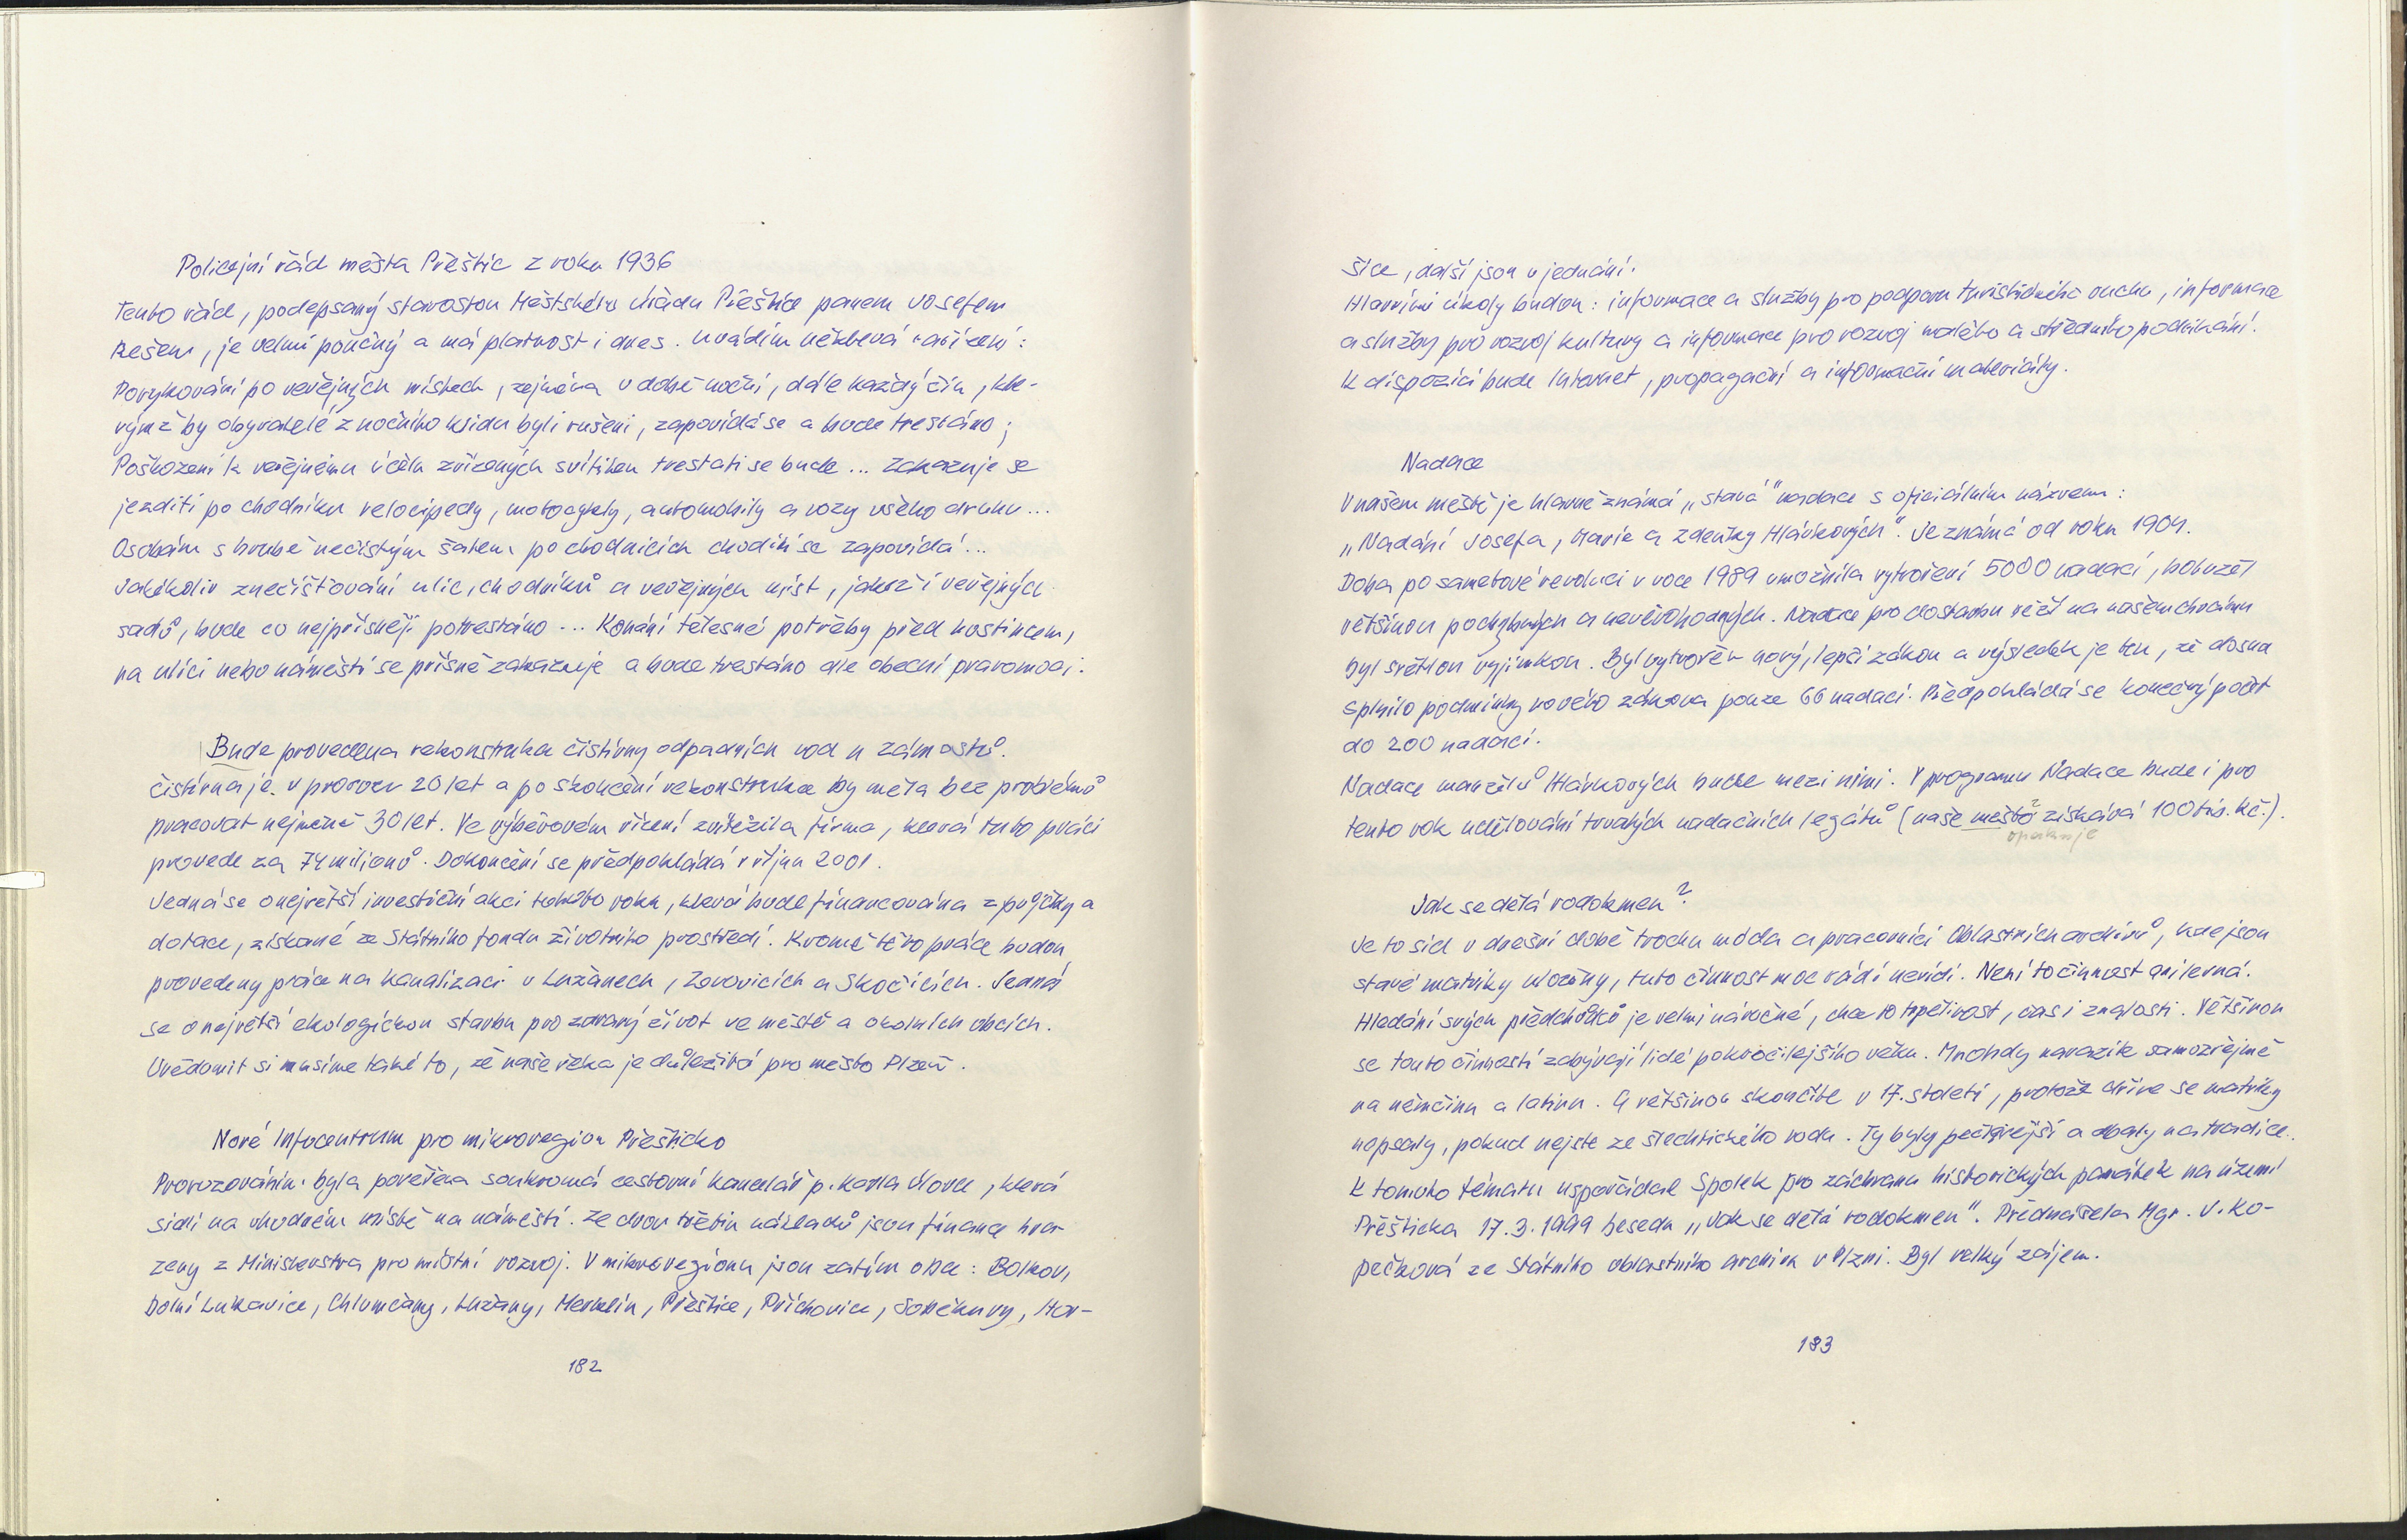 Policejní řád města Přeštic z roku 1936
Tento řád, podepsaný starostou Městského úřadu Přeštice panem Josefem
Rešem, je velmi poučný a má platnost i dnes. Uvádím některá nařízení:
Povykování po veřejných místech, zejména v době noční, dále každý čin, kte-
rým by obyvatelé z nočního klidu byli rušeni, zapovídá se a bude trestáno;
Poškození k veřejnému účelu zřízených svítilen trestati se bude ... Zakazuje se
jezditi po chodníku velocipedy, motocykly, automobily a vozy všeho druhu ...
Osobám s hrubě nečistým šatem po chodnících choditi se zapovídá ...
Jakékoliv znečišťování ulic, chodníků a veřejných míst, jakož i veřejných
sadů, bude co nejpřísněji potrestáno ... Konání tělesné potřeby před hostincem,
na ulici nebo náměstí se přísně zakazuje a bude trestáno dle obecní pravomoci.
Bude provedena rekonstrukce čistírny odpadních vod u zámostů.
Čistírna je v provozu 20 let a po skončení rekonstrukce by měla bez problémů
pracovat nejméně 30 let. Ve výběrovém řízení zvítězila firma, která tuto práci
provede za 74 milionů. Dokončení se předpokládá v říjnu 2001.
Jedná se o největší investiční akci tohoto roku, která bude financována z půjčky a
dotace, získané ze Státního fondu životního prostředí. Kromě této práce budou
provedeny práce na kanalizaci v Lužanech, Zerovicích a Skočicích. Jedná
se o největší ekologickou stavbu pro zdravý život ve městě a okolních obcích.
Uvědomit si musíme také to, že naše řeka je důležitá pro město Plzeň.
Nové Infocentrum pro mikroregion Přešticko
Provozováním byla pověřena soukromá cestovní kancelář p. Karla Úlovce, která
sídlí na vhodném místě na náměstí. Ze dvou třetin nákladů jsou finance hra-
zeny z Ministerstva pro místní rozvoj. V mikroregionu jsou zatím obce: Bolkov,
Dolní Lukavice, Chlumčany, Lužany, Merklín, Přeštice, Příchovice, Soběkury, Hor-
182
šice, další jsou v jednání.
Hlavními úkoly budou: informace a služby pro podporu turistického ruchu, informace
a služby pro rozvoj kultury a informace pro rozvoj malého a středního podnikání.
K dispozici bude Internet, propagační a informační materiály.
Nadace
V našem městě je hlavně známá „stará" nadace s oficiálním názvem:
„Nadání Josefa, Marie a Zdeňky Hlávkových". Je známá od roku 1904.
Doba po sametové revoluci v roce 1989 umožnila vytvoření 5000 nadací, bohužel
většinou pochybných a nevěrohodných. Nadace pro dostavbu věží na našem chrámu
byl světlou vyjímkou. Byl vytvořen nový, lepší zákon a výsledek je ten, že dosud
splnilo podmínky nového zákona pouze 66 nadací. Předpokládá se konečný počet
do 200 nadací.
Nadace manželů Hlávkových bude mezi nimi. V programu Nadace bude i pro
tento rok udělování trvalých nadačních legátů (naše město? získává 100 tis. Kč.).
opakuje
Jak se dělá rodokmen?
Je to sice v dnešní době trochu móda a pracovníci Oblastních archivů, kde jsou
staré matriky uloženy, tuto činnost moc rádi nevidí. Není to činnost ani levná.
Hledání svých předchůdců je velmi náročné, chce to trpělivost, čas i znalosti. Většinou
se touto činností zabývají lidé pokročilejšího věku. Mnohdy narazíte samozřejmě
na němčinu a latinu. A většinou skončíte v 17. století, protože dříve se matriky
nepsaly, pokud nejste ze šlechtického rodu. Ty byly pečlivější a dbaly na tradice.
K tomuto tématu uspořádal Spolek pro záchranu historických památek na území
Přešticka 17.3.1999 besedu „Jak se dělá rodokmen". Přednášela Mgr. V. Ko-
pečková ze Státního oblastního archivu v Plzni. Byl velký zájem.
183